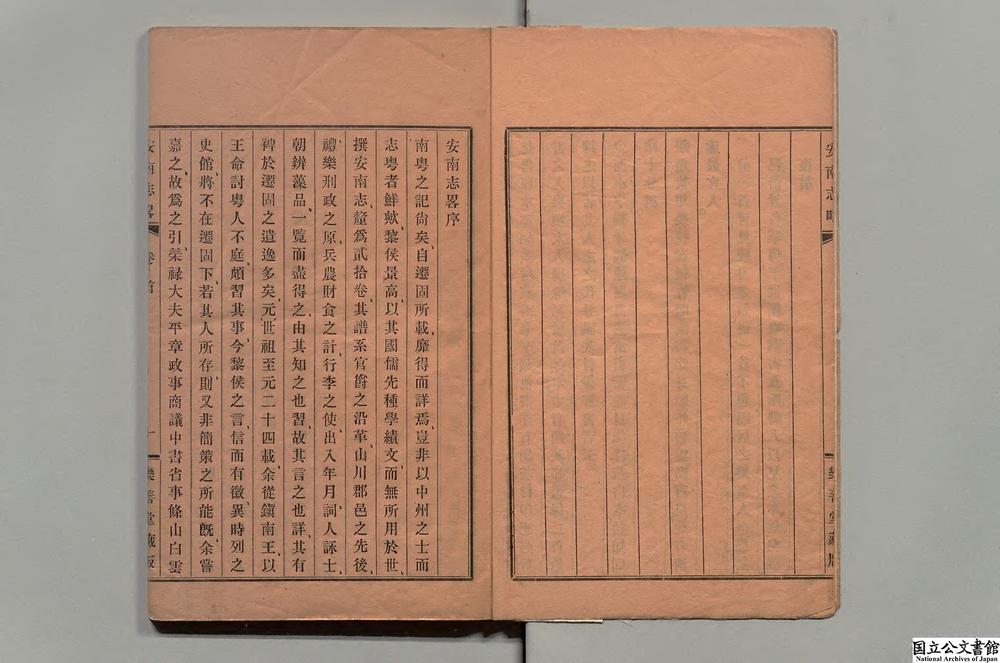 安南志畧序
南粤之記尙矣、自遷固所載靡得而詳焉、豈非以中州之士而
志粤者鮮歟、黎侯景高以其國儒先種學績文、而無所用於世、
撰安南志、釐爲貳拾卷、其譜系官爵之沿革、山川郡邑之先後、
禮樂刑政之原、兵農財食之計、行李之使、出入年月、詞人詠士、
朝辨藻品、一覧而盡得之、由其知之也習、故其言之也詳、其有
裨於遷固之遺逸多矣、元世祖至元二十四載、余從鎭南王、以
王命討粤人不庭、頗習其事、今黎侯之言、信而有徵、異時列之
史館、將不在遷固下、若其人所存、則又非簡策之所能旣、余嘗
嘉之、故爲之引、榮祿大夫平章政事商議中書省事條山白雲
安南志畧 卷首 一 樂善堂藏版
安南志畧
樂善堂藏版
国立公文書館
National Archives of Japan